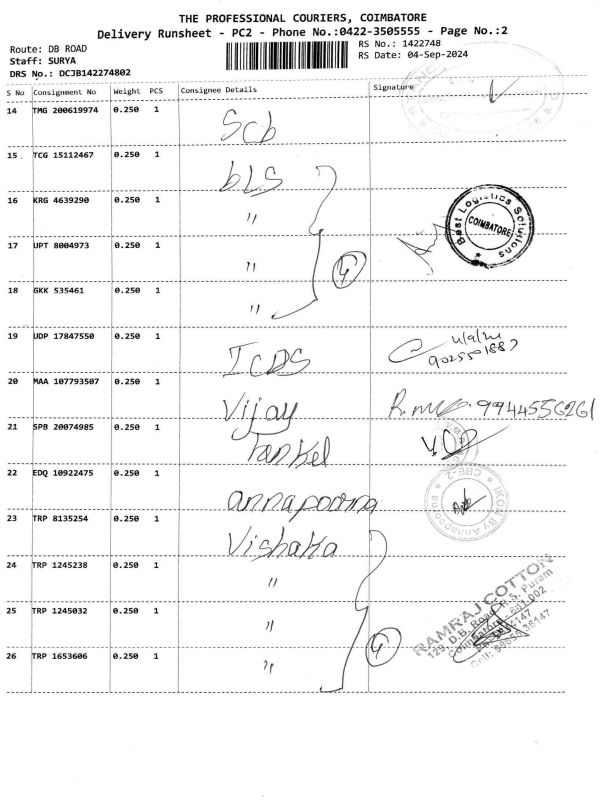 THE PROFESSIONAL COURIERS, COIMBATORE
Delivery Runsheet - PC2 - Phone No.:0422-3505555 - Page No.:2
Route: DB ROAD
Staff: SURYA
DRS No.: DCJB142274802
RS No.: 1422748
RS Date: 04-Sep-2024
S No Consignment No Weight PCS Consignee Details Signature
14 TMG 200619974 0.250 1 Scb
15 TCG 15112467 0.250 1 bLS
16 KRG 4639290 0.250 1 "
17 UPT 8004973 0.250 1 "
18 GKK 535461 0.250 1 "
4
Best Logistics Solutions
COIMBATORE
19 UDP 17847550 0.250 1 ICDS
4/9/24
9025501887
20 MAA 107793507 0.250 1 Vijay 9944556261
21 SPB 20074985 0.250 1
22 EDQ 10922475 0.250 1 annapoorna
CBE-2
IKON By Annapoorna
23 TRP 8135254 0.250 1 Vishaka
24 TRP 1245238 0.250 1 "
25 TRP 1245032 0.250 1 "
26 TRP 1653606 0.250 1 "
4
RAMRAJ COTTON
129, D.B. Road, R.S. Puram
Coimbatore - 641 002